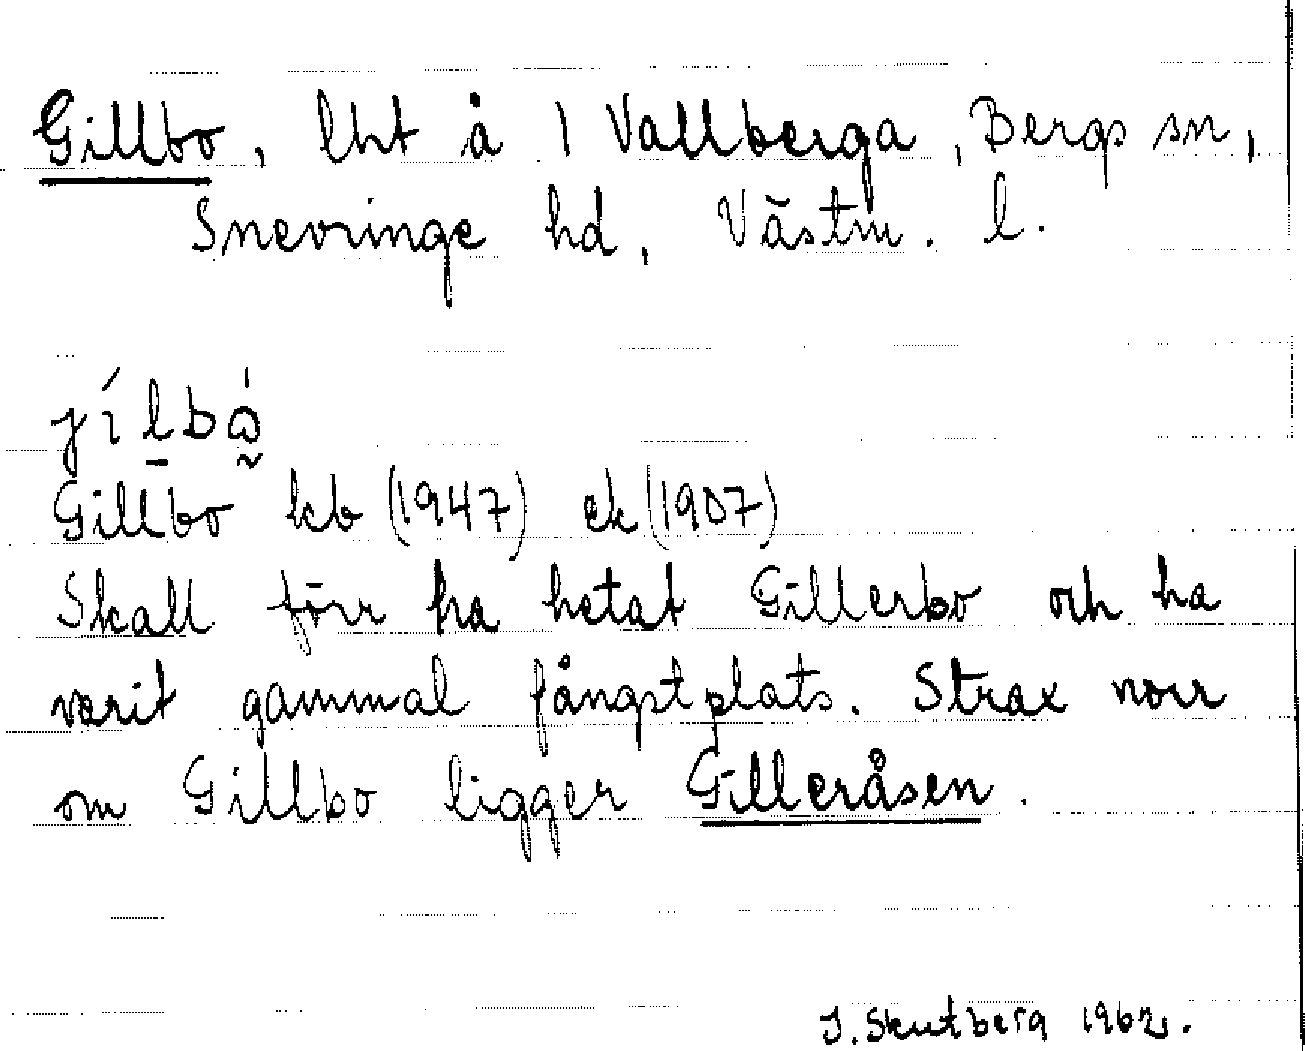 Gillbo, lht å 1 Vallberga, Bergs sn,
Snevringe hd, Västm. l.
Gillbo kb (1947) ek (1907)
Skall förr ha hetat Gillerbo och ha
varit gammal fångstplats. Strax norr
om Gillbo ligger Gilleråsen.
J. Skutberg 1962.